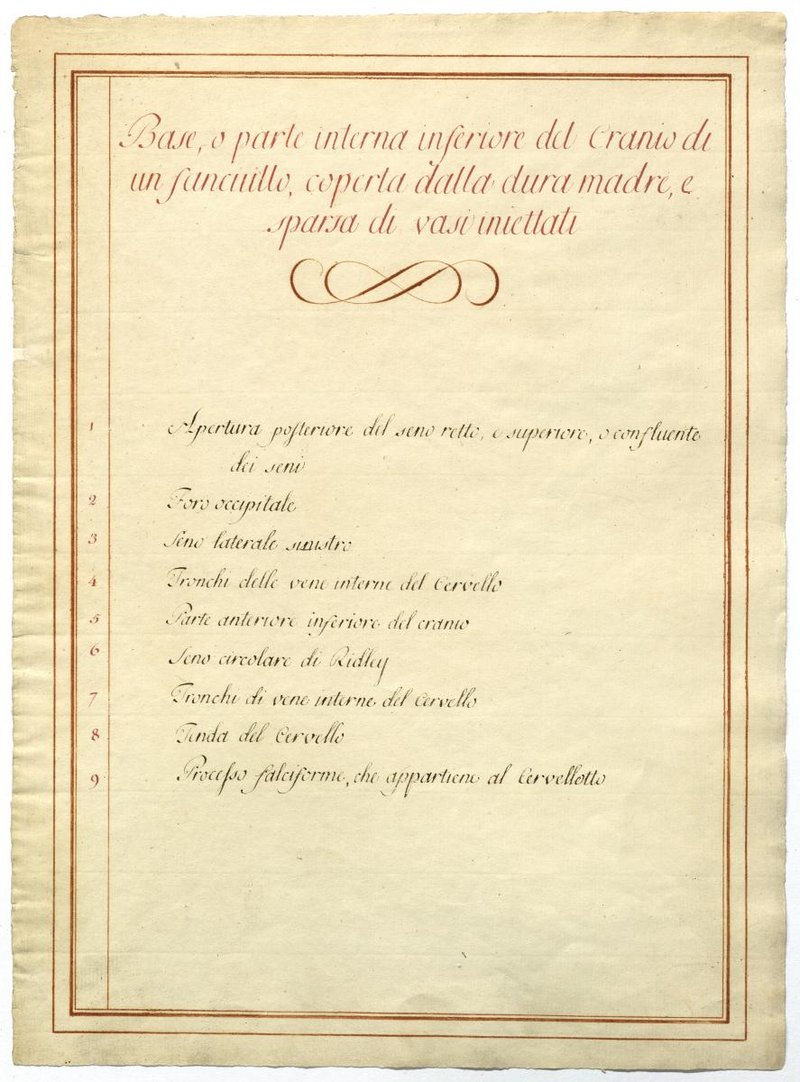 Base, o parte interna inferiore del Cranio di
un fanciullo, coperta dalla dura madre, e
sparsa di vasi iniettati
1 Apertura posteriore del seno retto, e superiore, o confluente
dei seni
2 Foro occipitale
3 Seno laterale sinistro
4 Tronchi delle vene interne del Cervello
5 Parte anteriore inferiore del cranio
6 Seno circolare di Ridley
7 Tronchi di vene interne del Cervello
8 Tenda del Cervello
9 Processo falciforme, che appartiene al Cervellotto